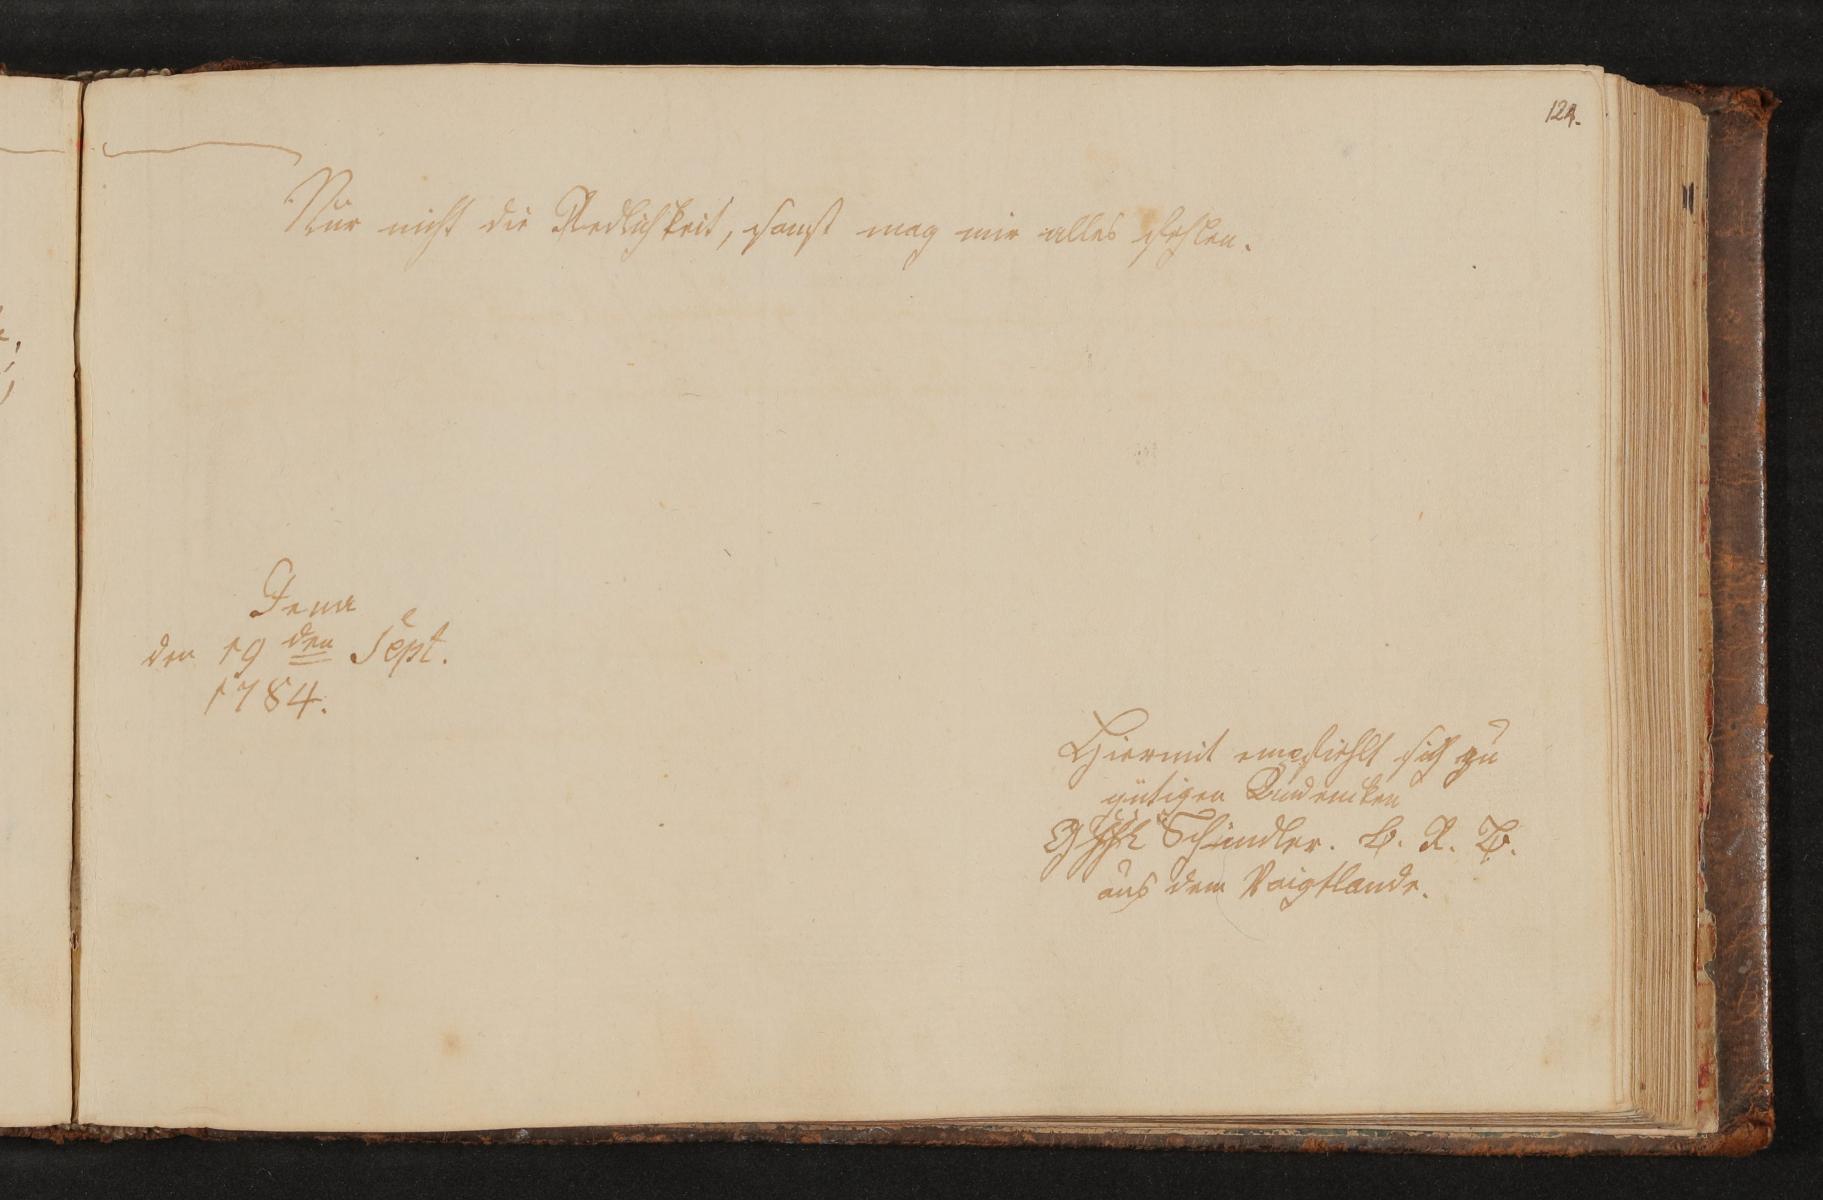 124.
Nur nicht die Redlichkeit, sonst mag mir alles fehlen.
Jena
den 19 den Sept.
1784.
Hiermit empfiehlt sich zu
gütigen Andencken
Schindler. B. R. B.
aus dem Voigtlande.